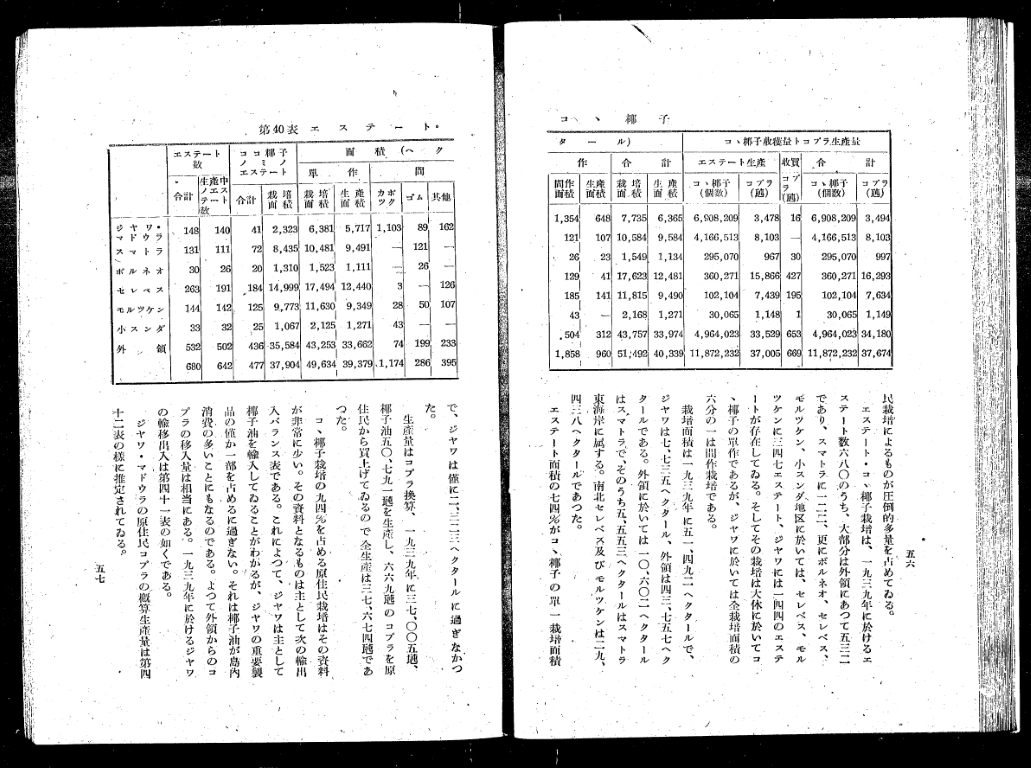 コヽ椰子
タール) コヽ椰子收穫量トコプラ生產量
作 合計 エステート生產 收買コプラ(瓲) 合計
間作面積 生產面積 栽培面積 生產面積 コヽ椰子(個数) コプラ(瓲) コヽ椰子(個数) コプラ(瓲)
1,354 648 7,735 6,365 6,908,209 3,478 16 6,908,209 3,494
121 107 10,584 9,584 4,166,513 8,103 — 4,166,513 8,103
26 23 1,549 1,134 295,070 967 30 295,070 997
129 41 17,623 12,481 360,271 15,866 427 360,271 16,293
185 141 11,815 9,490 102,104 7,439 195 102,104 7,634
43 — 2,168 1,271 30,065 1,148 1 30,065 1,149
504 312 43,757 33,974 4,964,023 33,529 653 4,964,023 34,180
1,858 960 51,492 40,339 11,872,232 37,005 669 11,872,232 37,674
民栽培によるものが圧倒的多量を占めてゐる。
エステート・コヽ椰子栽培は、一九三九年に於けるエ
ステート数六八〇のうち、大部分は外領にあつて五三二
であり、スマトラに一二二、更にボルネオ、セレベス、
モルツケン、小スンダ地区に於いては、セレベス、モル
ツケンに三四七エステート、ジヤワには一四四のエステ
ートが存在してゐる。そしてその栽培は大体に於いてコ
ヽ椰子の單作であるが、ジヤワに於いては全栽培面積の
六分の一は間作栽培である。
栽培面積は一九三九年に五一、四九二ヘクタールで、
ジヤワは七、七三五ヘクタール、外領は四三、七五七ヘク
タールである。外領に於いては一〇、六〇二ヘクタタール
はスマトラで、そのうち五、五五三ヘクタールはスマトラ
東海岸に属する。南北セレベス及びモルツケンは二九、
四三八ヘクタールであつた。
エステート面積の七四%がコヽ椰子の單一栽培面積
五六
第40表 エステート・
エステート数 ココ椰子ノミノエステート 面積(ヘク
單作 間
合計 生產中ノエステート数 合計 栽培面積 栽培面積 生產面積 カポツク ゴム 其他
ジヤワ・マドウラ 148 140 41 2,323 6,381 5,717 1,103 89 162
スマトラ 131 111 72 8,435 10,481 9,491 — 121 —
ボルネオ 30 26 20 1,310 1,523 1,111 — 26 —
セレベス 263 191 184 14,999 17,494 12,440 3 — 126
モルツケン 144 142 125 9,773 11,630 9,349 28 50 107
小スンダ 33 32 25 1,067 2,125 1,271 43 — —
外領 532 502 436 35,584 43,253 33,662 74 199 233
680 642 477 37,904 49,634 39,379 1,174 286 395
で、ジヤワは僅に二、三二三ヘクタールに過ぎなかつ
た。
生產量はコプラ換算、一九三九年に三七、〇〇五瓲、
椰子油五〇、七九一瓲を生產し、六六九瓲のコプラを原
住民から買上げてゐるので全生產は三七、六七四瓲であ
つた。
コヽ椰子栽培の九四%を占める原住民栽培はその資料
が非常に少い。その資料となるものは主として次の輸出
入バランス表である。これによつて、ジヤワは主として
椰子油を輸入してゐることがわかるが、ジヤワの重要製
品の僅か一部を占めるに過ぎない。それは椰子油が島內
消費の多いことにもなるのである。よつて外領からのコ
プラの移入量は相当にある。一九三九年に於けるジヤワ
の輸移出入は第四十一表の如くである。
ジヤワ・マドウラの原住民コプラの概算生產量は第四
十二表の樣に推定されてゐる。
五七